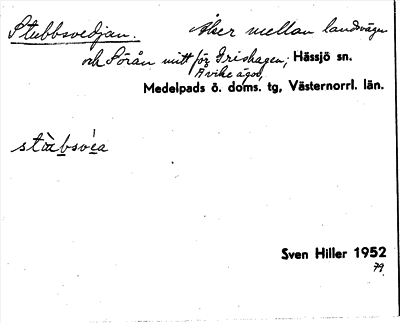 Stubbsvedjan. Åker mellan landsvägen
och Sörån mitt för Grishagen; Hässjö sn.
Åvike ägor,
Medelpads ö. doms. tg, Västernorrl. län.
Sven Hiller 1952
79.